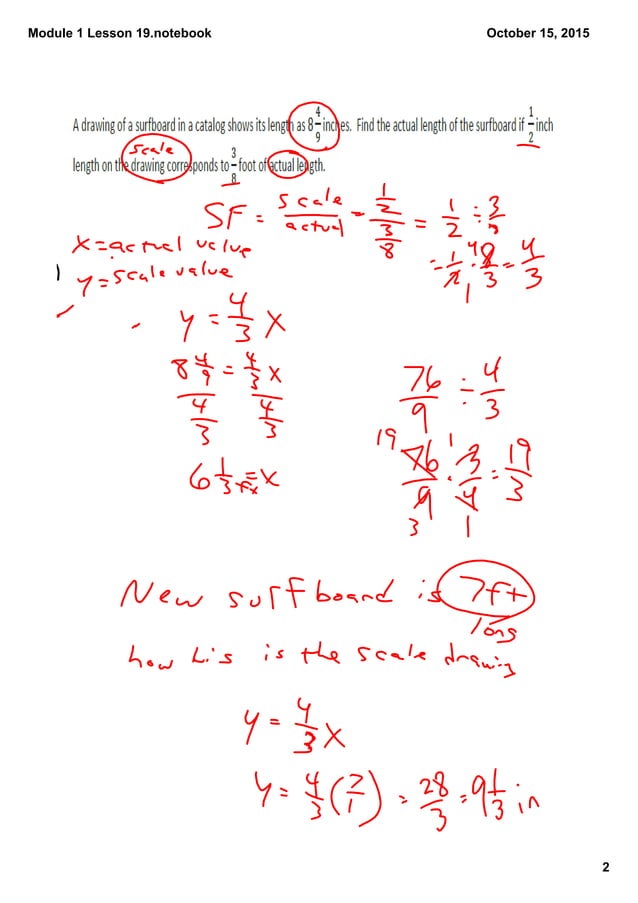 Module 1 Lesson 19.notebook
October 15, 2015
A drawing of a surfboard in a catalog shows its length as 8 4/9 inches. Find the actual length of the surfboard if 1/2 inch
scale
length on the drawing corresponds to 3/8 foot of actual length.
SF = scale/actual = (1/2)/(3/8) = 1/2 ÷ 3/8
x = actual value
= 1/2 · 8/3 = 4/3
4
1
1) y = scale value
y = 4/3 x
8 4/9 = 4/3 x
4/3 4/3
76/9 ÷ 4/3
6 1/3 = x
19 1
76/9 · 3/4 = 19/3
3 1
New surfboard is 7ft
long
is the scale drawing
y = 4/3 x
y = 4/3 (7/1) = 28/3 = 9 1/3 in
2